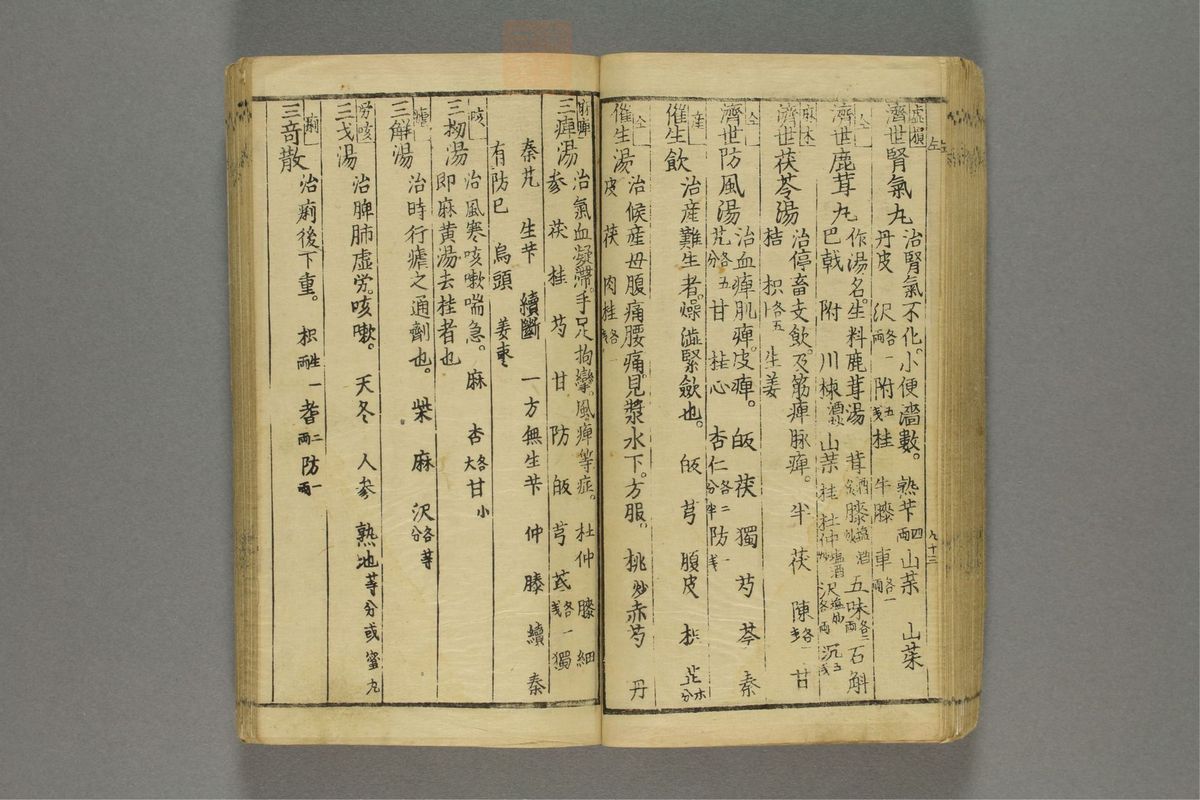 虚損
濟世腎氣丸 治腎氣不化。小便濇數。 熟芐四両 山茱 山葉
丹皮 沢各一両 附五戔 桂 牛膝 車各一両
仝
濟世鹿茸丸 作湯名。生料鹿茸湯 茸酒炙 膝塩酒炒 五味各二両 石斛
巴戟 附 川楝酒炒 山葉 桂 杜仲塩酒炒 沢塩炒各両 沉五戔
麻木
濟世茯苓湯 治停畜支飲。及筋痺脉痺。 半 茯 陳各一戔 甘
桔 枳各五卜 生姜
仝
濟世防風湯 治血痺肌痺。皮痺。 皈 茯 獨 芍 芩 秦
艽各五分 甘 桂心 杏仁各二分半 防一戔
産
催生飲 治産難生者。燥澁緊歛也。 皈 芎 腹皮 枳 芷木分
仝
催生湯 治候産母腹痛腰痛。見漿水下。方服。 桃炒 赤芍 丹
皮 茯 肉桂各戔
三痺湯 治氣血凝滯。手足拘攣。風痺等症。 杜仲 膝 細
参 茯 桂 芍 甘 防 皈 芎 芪各一戔 獨
秦艽 生芐 續斷 一方無生芐 仲 膝 續 秦
有防巳 烏頭 姜枣
咳
三拗湯 治風寒咳嗽喘急。 麻 杏各大 甘小
即麻黄湯去桂者也
瘧
三解湯 治時行瘧之通劑也。 柴 麻 沢各等分
労咳
三戈湯 治脾肺虚労。咳嗽。 天冬 人参 熟地 等分或蜜丸
痢
三奇散 治痢後下重。 枳生一両 耆二両 防一両
九十三